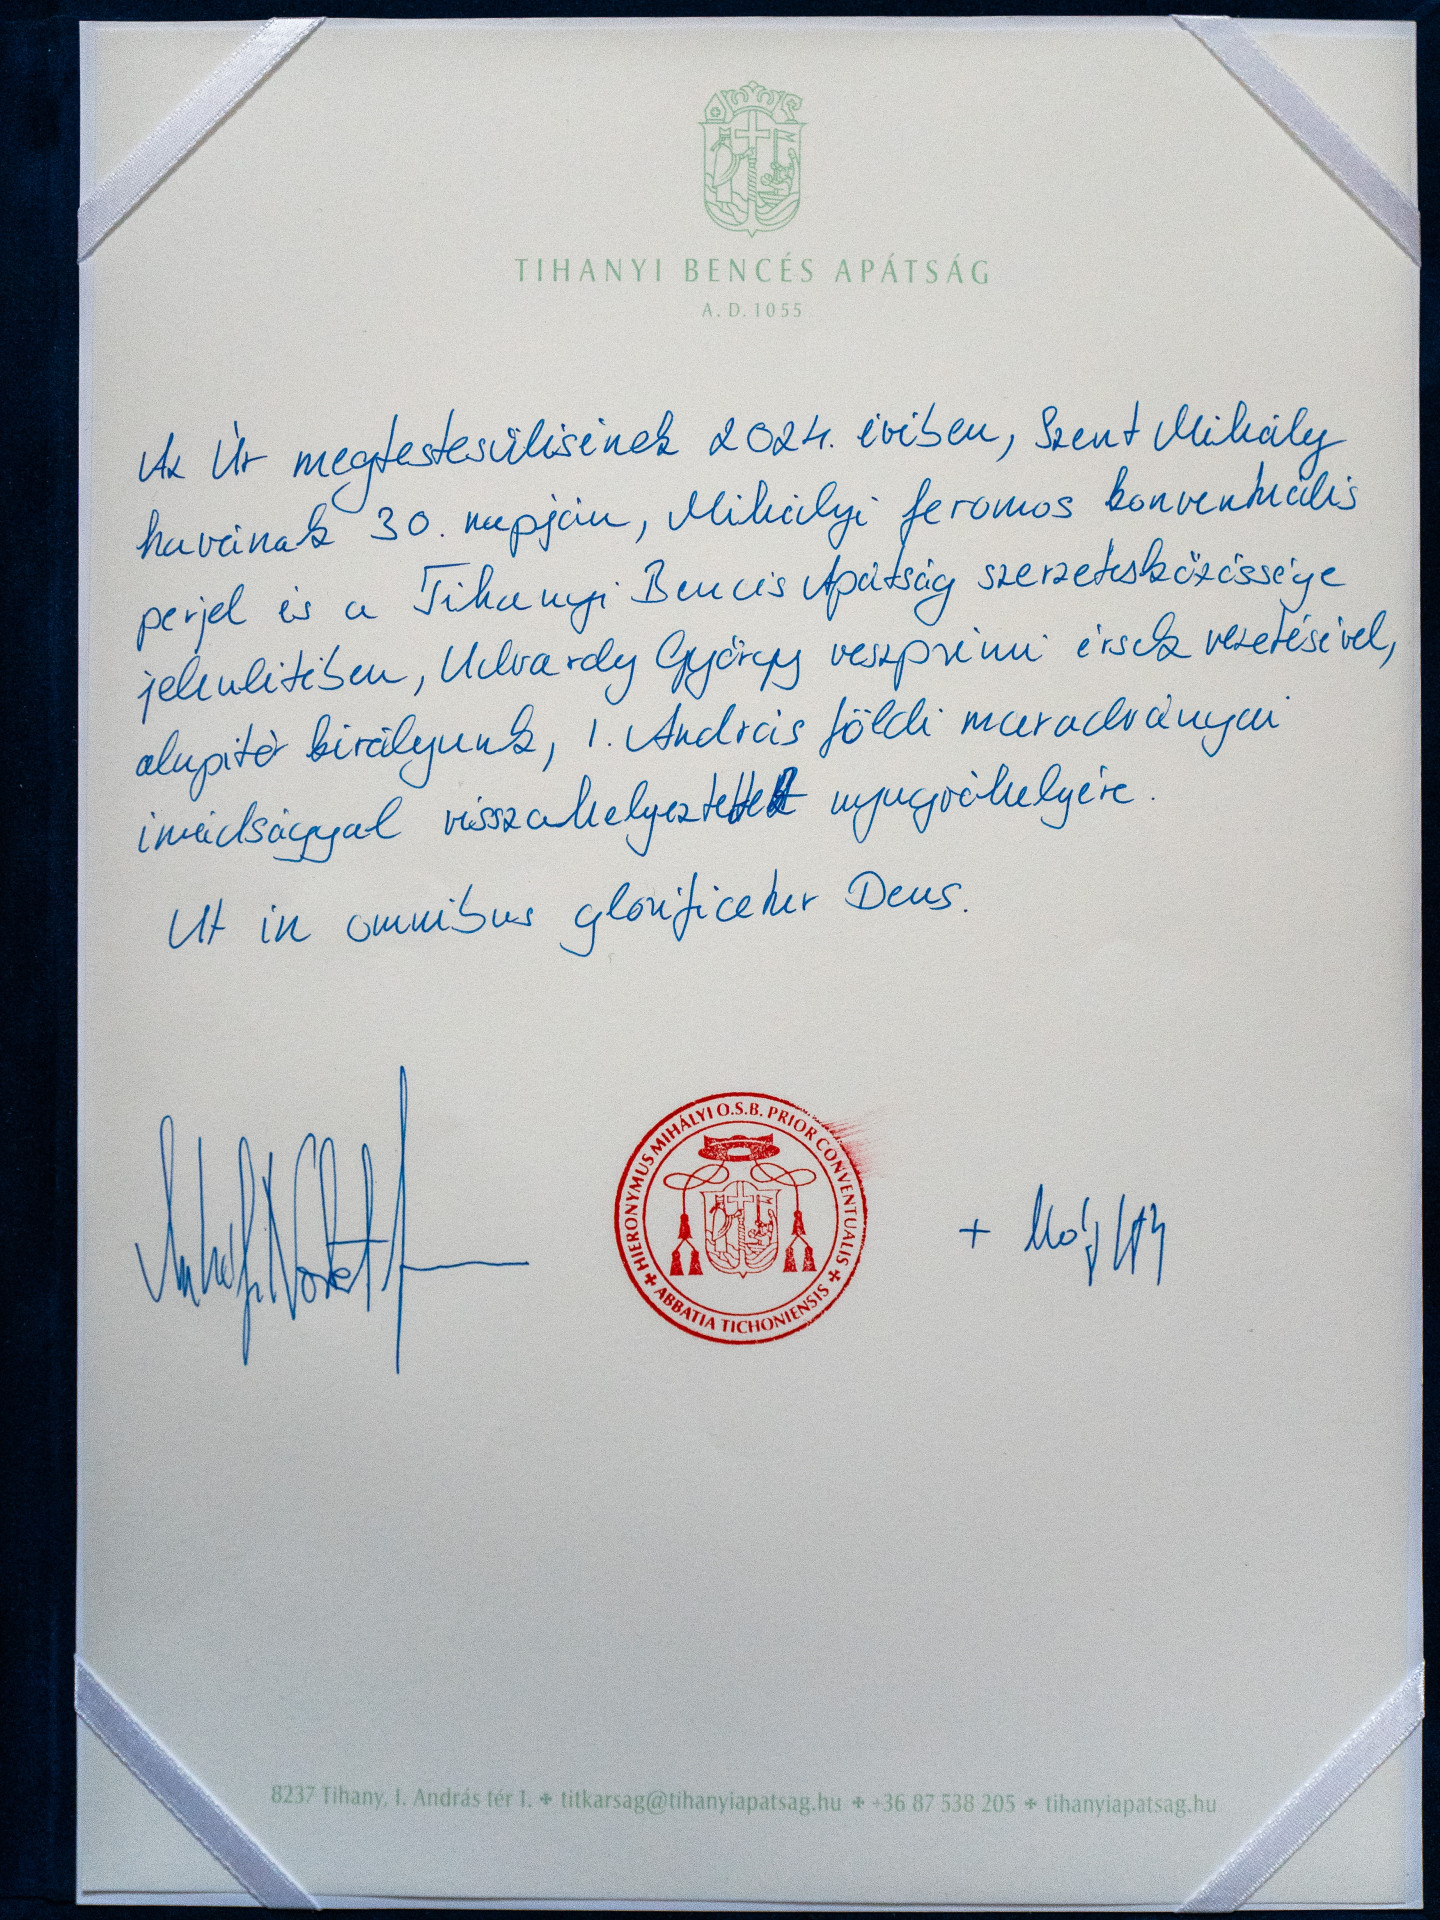 TIHANYI BENCÉS APÁTSÁG
A. D. 1055
Az Úr megtestesülésének 2024. évében, Szent Mihály
havának 30. napján, Mihályi Jeromos konventuális
perjel és a Tihanyi Bencés Apátság szerzetesközössége
jelenlétében, Udvardy György veszprémi érsek vezetésével,
alapító királyunk, I. András földi maradványai
imádsággal visszahelyeztettek nyugvóhelyére.
Ut in omnibus glorificetur Deus.
HIERONYMUS MIHÁLYI O.S.B. PRIOR CONVENTUALIS
ABBATIA TICHONIENSIS
+
8237 Tihany, I. András tér 1. ✚ titkarsag@tihanyiapatsag.hu ✚ +36 87 538 205 ✚ tihanyiapatsag.hu